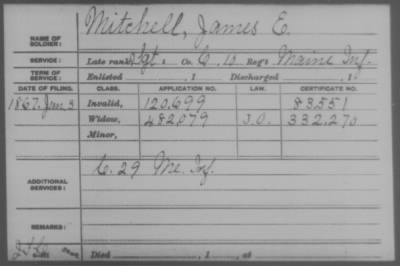 NAME OF SOLDIER: Mitchell, James E.
SERVICE: Late rank, Sgt. Co. C, 10 Reg't Maine Inf.
TERM OF SERVICE: Enlisted , 1 Discharged , 1
DATE OF FILING. CLASS. APPLICATION NO. LAW. CERTIFICATE NO.
1867, Jan 3 Invalid, 120,699 83,551
Widow, 482,079 J.O. 332,270
Minor,
ADDITIONAL SERVICES: C. 29 Me. Inf.
REMARKS:
Died , 1 , at